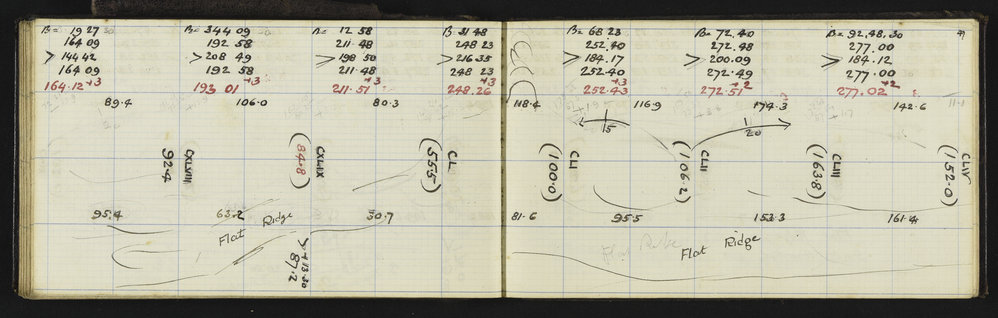 B= 19 27
164 09
> 144 42
164 09
164.12 +3
B= 344 09
192 58
> 208 49
192 58
193 01 +3
B= 12 58
211.48
> 198 50
211.48
211.51 +3
B= 31 48
248 23
> 216 35
248 23
248.26 +3
B= 68 23
252.40
> 184.17
252.40
252.43 +3
B= 72.40
272.48
> 200.09
272.49
272.51 +2
B= 92.48.30
277.00
> 184.12
277.00
277.02 +2
89.4 106.0 80.3
118.4 116.9 174.3 142.6
15 20
CXLVIII
92.4
CXLIX
(84.8)
CL
(55.5)
CLI
(100.0)
CLII
(106.2)
CLIII
(163.8)
CLIV
(152.0)
95.4 63.2 50.7
81.6 95.5 153.3 161.4
Flat Ridge
87.2
Flat Ridge
Flat Ridge